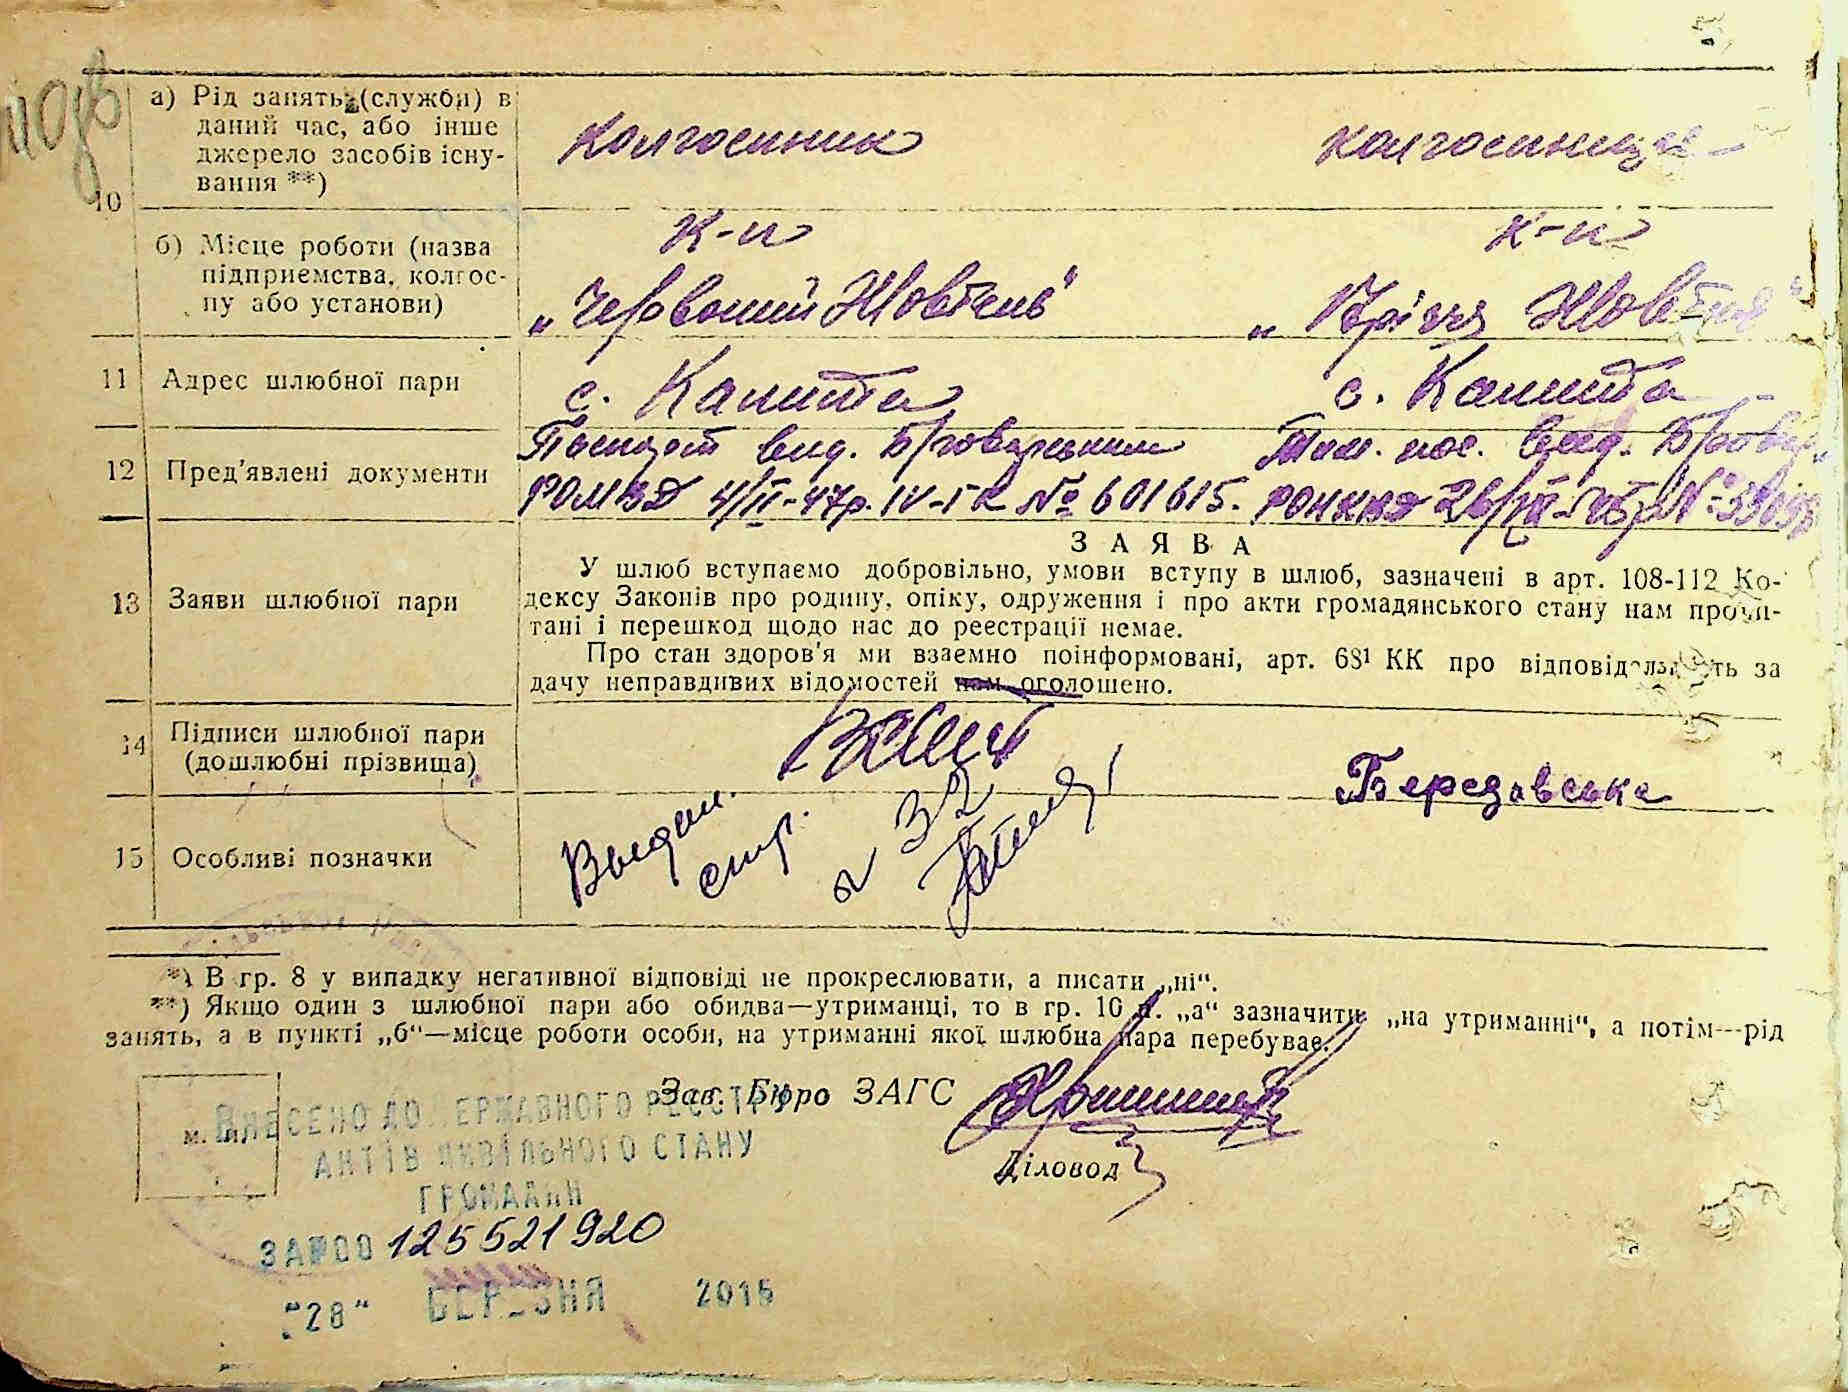 10
а) Рід занять (служби) в даний час, або інше джерело засобів існування **)
Колгоспник
колгоспниця
б) Місце роботи (назва підприємства, колгоспу або установи)
К-п
„Червоний Жовтень"
к-п
Жовтня"
11 Адрес шлюбної пари
с. Калита
с. Калита
12 Пред'явлені документи
Паспорт вид. Броварським
РОМВД 4/II-47р. IV-ГК № 601615.
вид.
РОНКВД 26/
13 Заяви шлюбної пари
ЗАЯВА
У шлюб вступаємо добровільно, умови вступу в шлюб, зазначені в арт. 108-112 Ко-
дексу Законів про родину, опіку, одруження і про акти громадянського стану нам прочи-
тані і перешкод щодо нас до реєстрації немає.
Про стан здоров'я ми взаємно поінформовані, арт. 68¹ КК про відповідальність за
дачу неправдивих відомостей нам оголошено.
14 Підписи шлюбної пари (дошлюбні прізвища)
Березавська
15 Особливі позначки
*) В гр. 8 у випадку негативної відповіді не прокреслювати, а писати „ні".
**) Якщо один з шлюбної пари або обидва—утриманці, то в гр. 10 п. „а" зазначити: „на утриманні", а потім—рід
занять, а в пункті „б"—місце роботи особи, на утриманні якої шлюбна пара перебуває.
Зав. Бюро ЗАГС
Діловод
ВНЕСЕНО ДО ДЕРЖАВНОГО РЕЄСТРУ
АКТІВ ЦИВІЛЬНОГО СТАНУ
ГРОМАДЯН
ЗА №00 125521920
"28" БЕРЕЗНЯ 2015